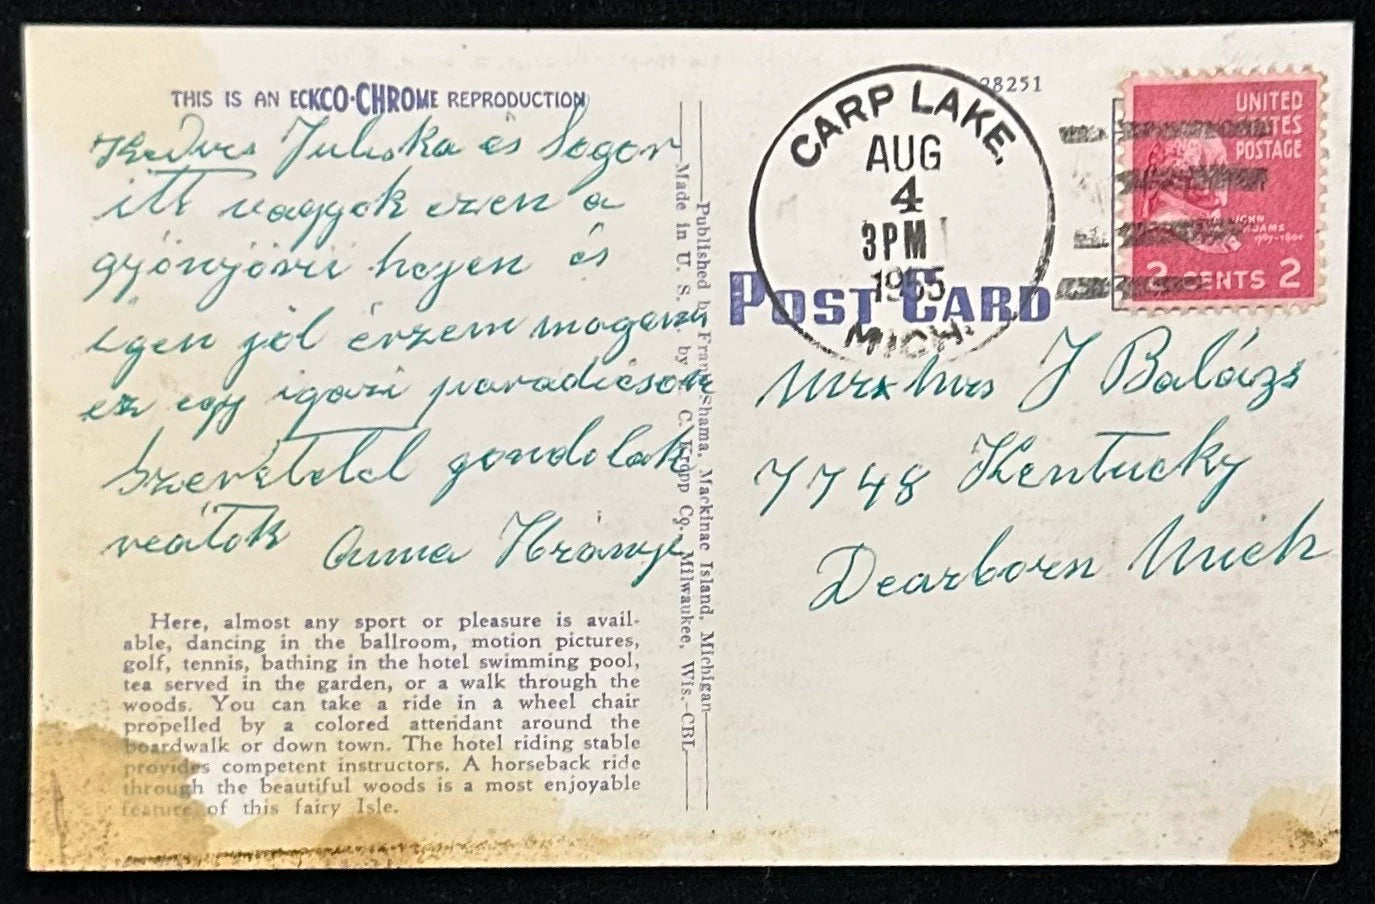 THIS IS AN ECKCO-CHROME REPRODUCTION
Kedves Juliska és Sogor
itt vagyok ezen a
gyönyörü hejen és
igen jol érzem magam
ez egy igazi paradicsom
Szeretetel gondolok
reátok Anna
Here, almost any sport or pleasure is avail-
able, dancing in the ballroom, motion pictures,
golf, tennis, bathing in the hotel swimming pool,
tea served in the garden, or a walk through the
woods. You can take a ride in a wheel chair
propelled by a colored attendant around the
boardwalk or down town. The hotel riding stable
provides competent instructors. A horseback ride
through the beautiful woods is a most enjoyable
feature of this fairy Isle.
Published by Frank Shama, Mackinac Island, Michigan
Made in U. S. by E. C. Kropp Co., Milwaukee, Wis.-CBL
28251
CARP LAKE,
AUG
4
3 PM
1955
MICH.
UNITED
STATES
POSTAGE
JOHN
ADAMS
1797-1801
2 CENTS 2
POST CARD
Mr x Mrs J Balázs
7748 Kentucky
Dearborn Mich